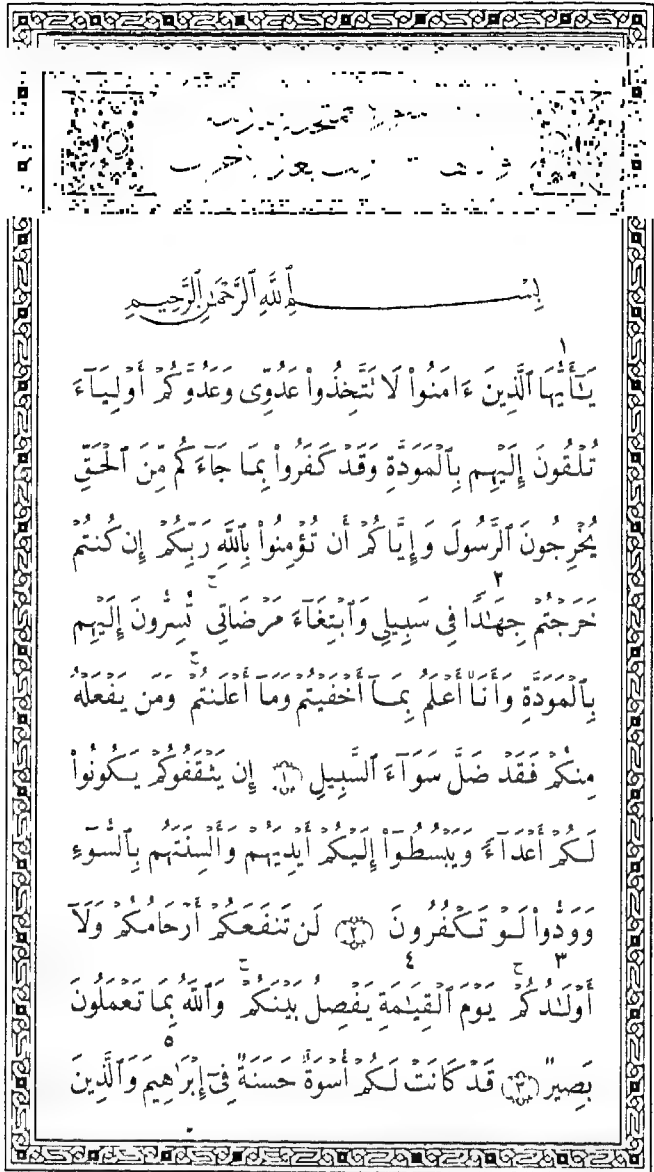 بِسْمِ ٱللَّهِ ٱلرَّحْمَٰنِ ٱلرَّحِيمِ
١ يَٰٓأَيُّهَا ٱلَّذِينَ ءَامَنُوا۟ لَا تَتَّخِذُوا۟ عَدُوِّى وَعَدُوَّكُمْ أَوْلِيَآءَ
تُلْقُونَ إِلَيْهِم بِٱلْمَوَدَّةِ وَقَدْ كَفَرُوا۟ بِمَا جَآءَكُم مِّنَ ٱلْحَقِّ
يُخْرِجُونَ ٱلرَّسُولَ وَإِيَّاكُمْ أَن تُؤْمِنُوا۟ بِٱللَّهِ رَبِّكُمْ إِن كُنتُمْ
خَرَجْتُمْ جِهَٰدًا ٢ فِى سَبِيلِى وَٱبْتِغَآءَ مَرْضَاتِى ۚ تُسِرُّونَ إِلَيْهِم
بِٱلْمَوَدَّةِ وَأَنَا۠ أَعْلَمُ بِمَآ أَخْفَيْتُمْ وَمَآ أَعْلَنتُمْ ۚ وَمَن يَفْعَلْهُ
مِنكُمْ فَقَدْ ضَلَّ سَوَآءَ ٱلسَّبِيلِ ﴿١﴾ إِن يَثْقَفُوكُمْ يَكُونُوا۟
لَكُمْ أَعْدَآءً وَيَبْسُطُوٓا۟ إِلَيْكُمْ أَيْدِيَهُمْ وَأَلْسِنَتَهُم بِٱلسُّوٓءِ
وَوَدُّوا۟ لَوْ تَكْفُرُونَ ﴿٢﴾ لَن تَنفَعَكُمْ أَرْحَامُكُمْ وَلَآ
أَوْلَٰدُكُمْ ۚ ٣ يَوْمَ ٱلْقِيَٰمَةِ ٤ يَفْصِلُ بَيْنَكُمْ ۚ وَٱللَّهُ بِمَا تَعْمَلُونَ
بَصِيرٌ ﴿٣﴾ قَدْ كَانَتْ لَكُمْ أُسْوَةٌ حَسَنَةٌ فِىٓ إِبْرَٰهِيمَ ٥ وَٱلَّذِينَ